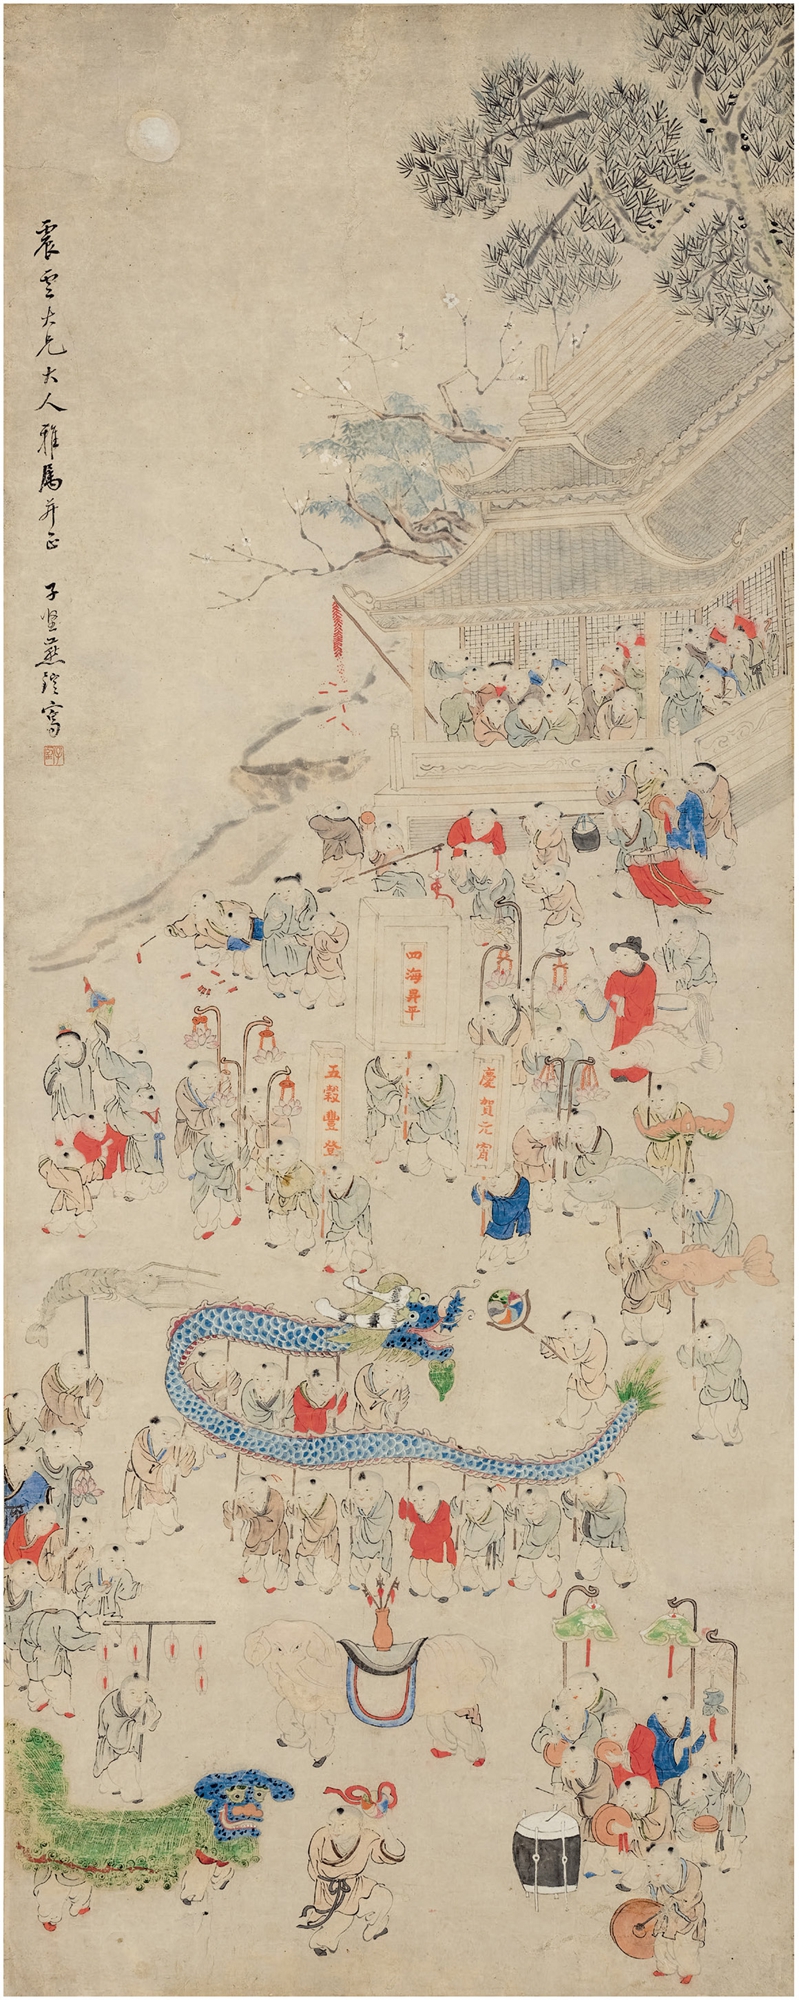 震雲大兄大人雅屬并正　子堅燕鎧寫
四海昇平
慶賀元宵
五穀豐登